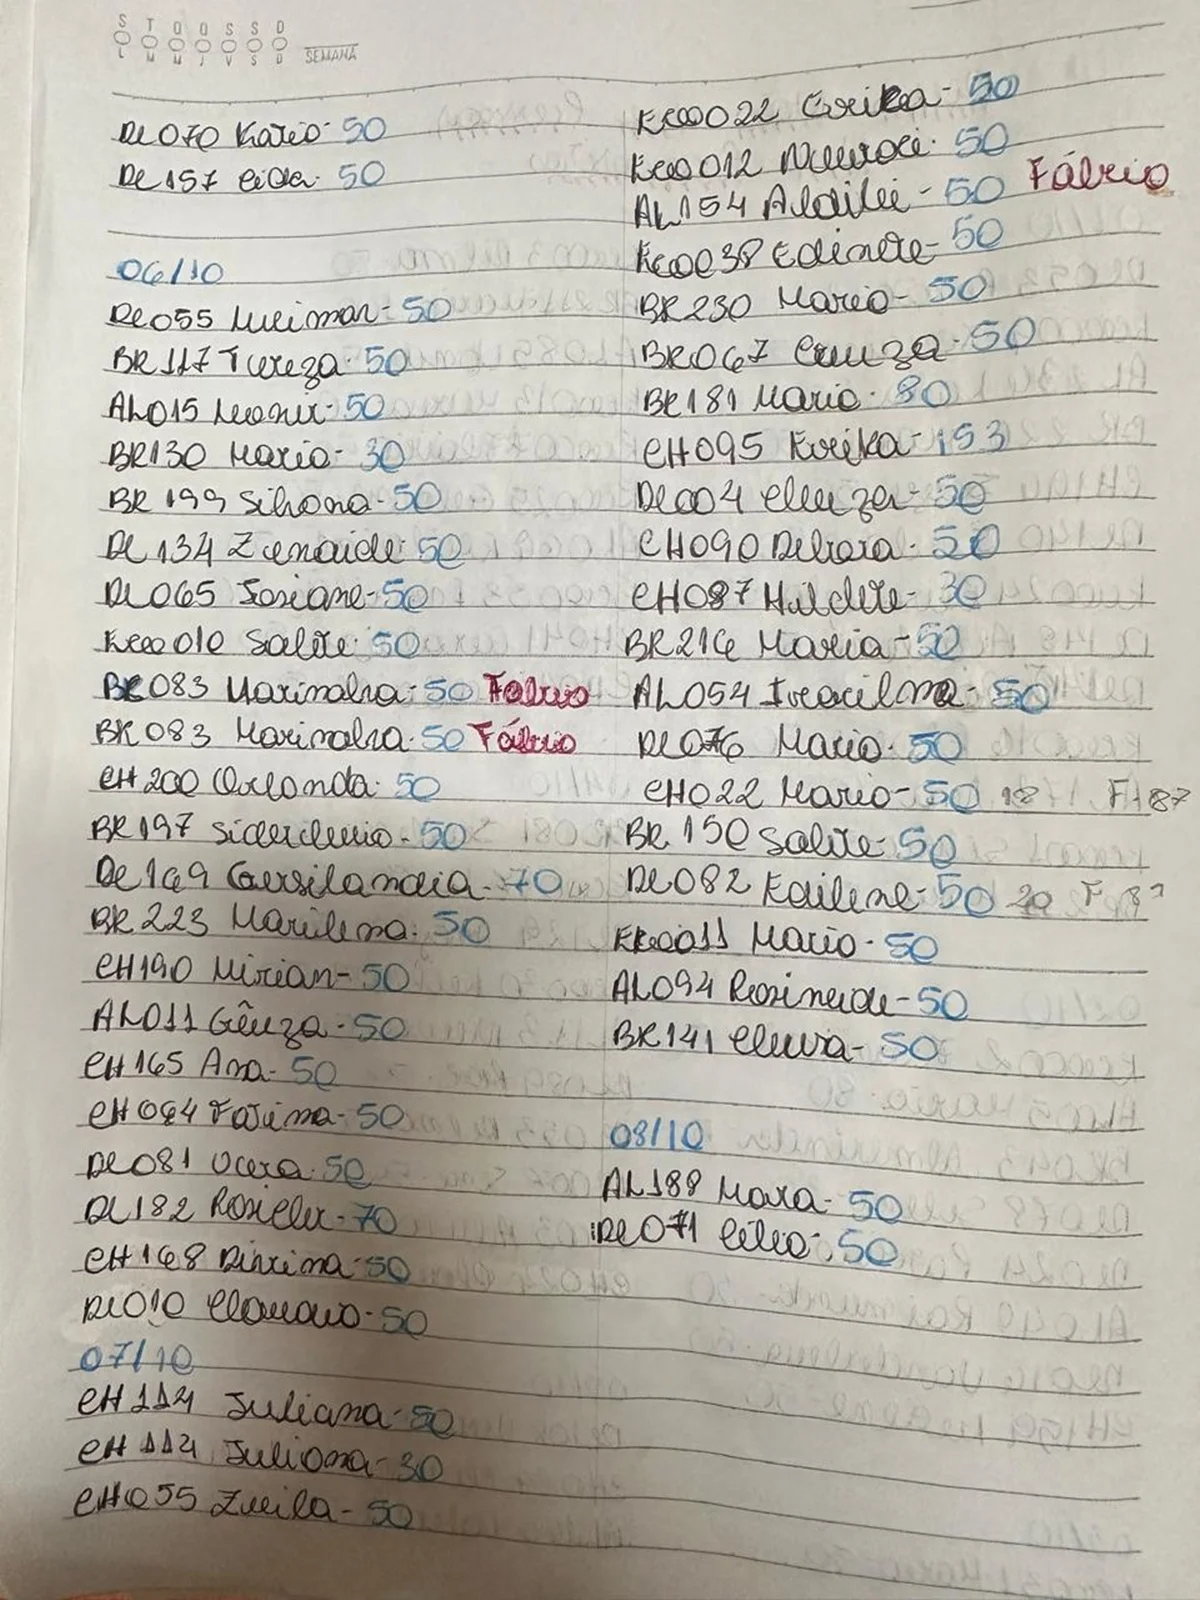 S T Q Q S S D
L M M J V S D SEMANA
DL070 Maria - 50
DL157 Cida - 50
06/10
DL055 Lucimar - 50
BR117 Tereza - 50
AL015 Leonir - 50
BR130 Maria - 30
BR199 Silvana - 50
DL134 Zenaide - 50
DL065 Josiane - 50
010 Salete - 50
BR083 Marinalva - 50 Fábio
BR083 Marinalva - 50 Fábio
CH200 Orlanda - 50
BR197 - 50
DL169 Gersilandia - 70
BR223 Marilena - 50
CH190 Mirian - 50
AL011 Gêuza - 50
CH165 Ana - 50
CH064 Fatima - 50
DL081 - 50
DL182 Rosicler - 70
CH168 - 50
DL010 - 50
07/10
CH114 Juliana - 50
CH114 Juliana - 30
CH055 Zuila - 50
022 Erika - 50
012 - 50
AL154 - 50 Fábio
038 Edinete - 50
BR230 Maria - 50
BR067 Creuza - 50
BR181 Maria - 80
CH095 Erika - 153
DL004 Cleuza - 50
CH090 Debora - 50
CH087 Hildete - 30
BR216 Maria - 50
AL054 Iracilma - 50
DL076 Maria - 50
CH022 Maria - 50 18 F 187
BR150 Salete - 50
DL082 Edilene - 50 20 F
011 Maria - 50
AL094 Rosineide - 50
BR141 - 50
08/10
AL188 Mara - 50
DL071 Célia - 50